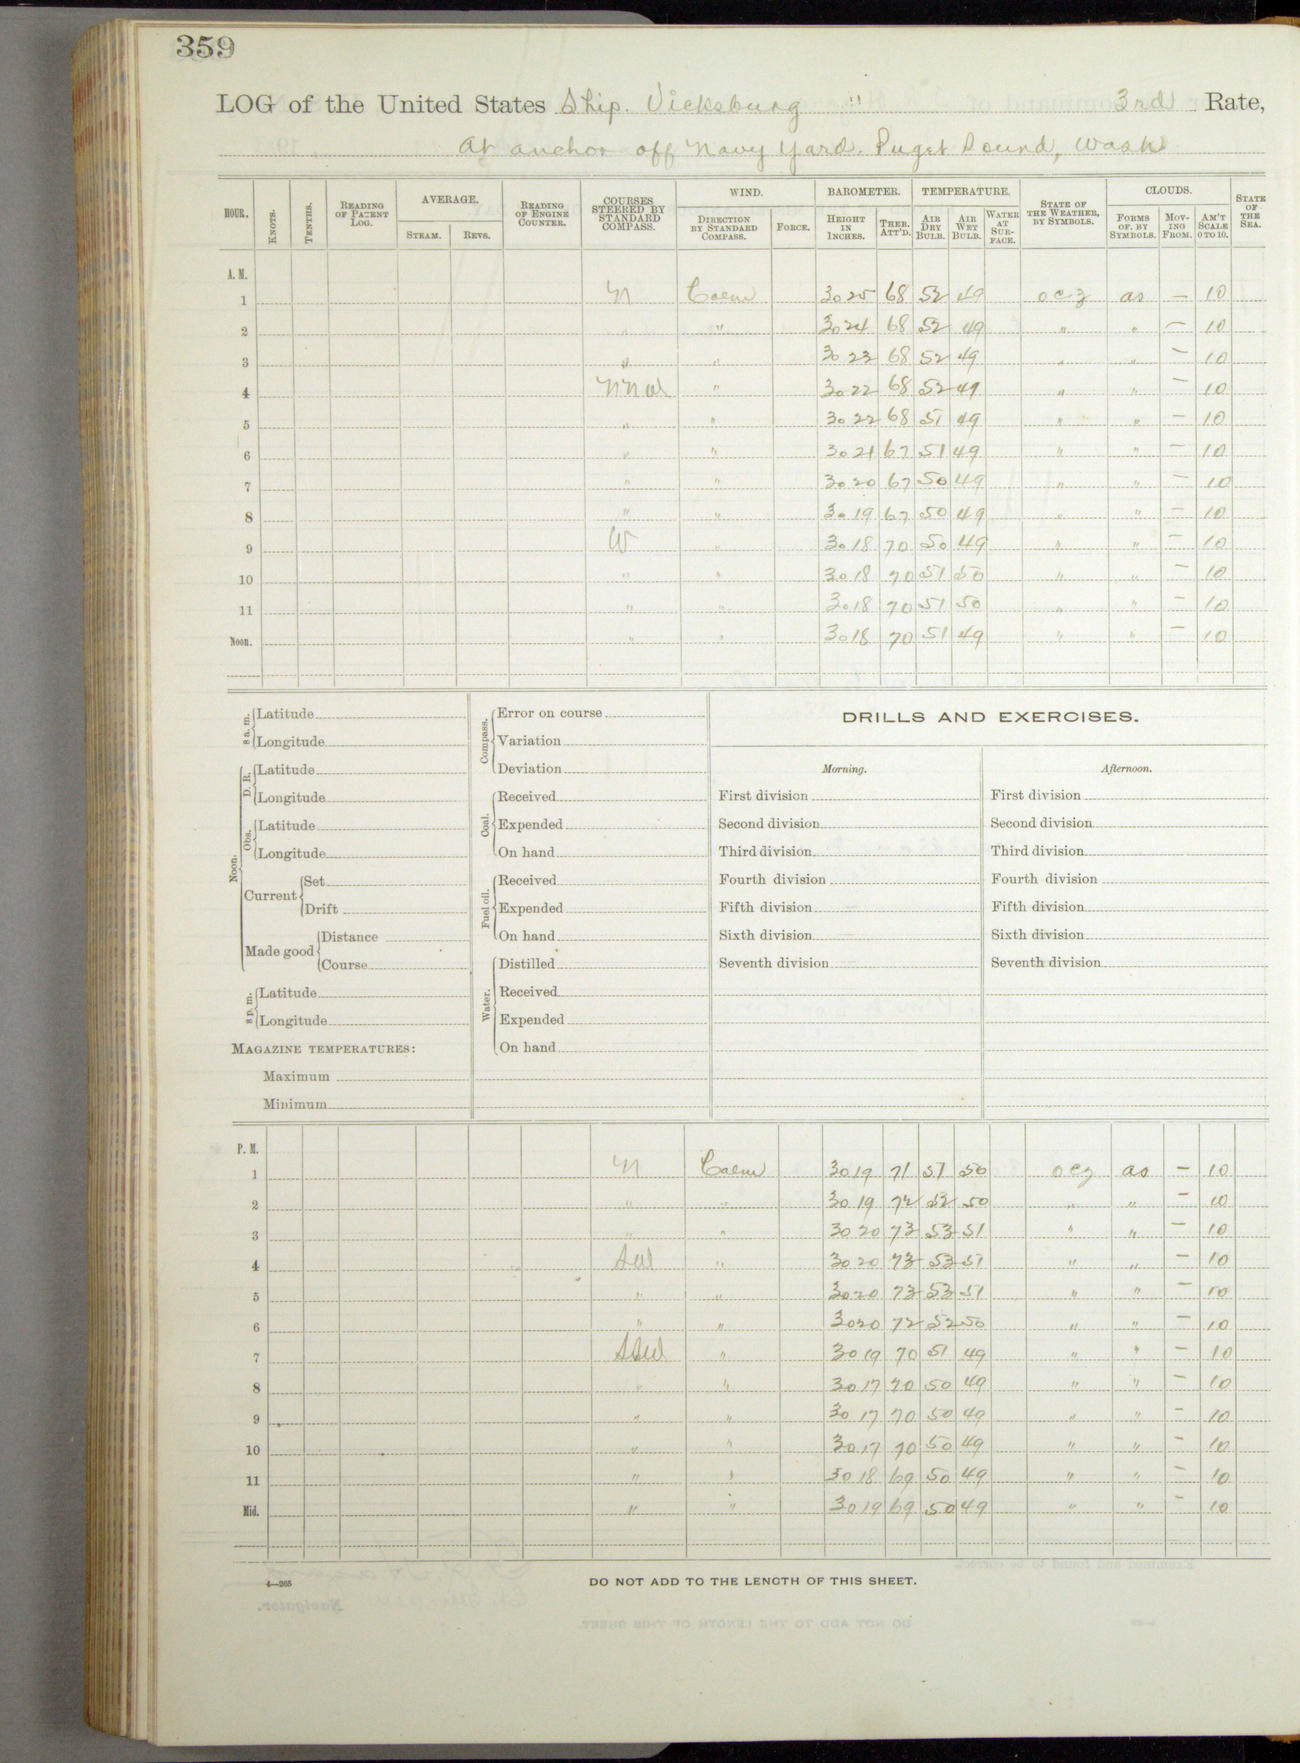 359
LOG of the United States Ship. Vicksburg " 3rd Rate,
At anchor off Navy Yard. Puget Sound, Wash
HOUR. KNOTS. TENTHS. READING OF PATENT LOG. AVERAGE. STEAM. REVS. READING OF ENGINE COUNTER. COURSES STEERED BY STANDARD COMPASS. WIND. DIRECTION BY STANDARD COMPASS. FORCE. BAROMETER. HEIGHT IN INCHES. THER. ATT'D. TEMPERATURE. AIR DRY BULB. AIR WET BULB. WATER AT SURFACE. STATE OF THE WEATHER, BY SYMBOLS. CLOUDS. FORMS OF, BY SYMBOLS. MOVING FROM. AM'T SCALE 0 TO 10. STATE OF THE SEA.
A. M.
1 N Calm 30 25 68 52 49 ocz as — 10
2 " " 30 24 68 52 49 " " — 10
3 " " 30 23 68 52 49 " " — 10
4 NNW " 30 22 68 52 49 " " — 10
5 " " 30 22 68 51 49 " " — 10
6 " " 30 21 67 51 49 " " — 10
7 " " 30 20 67 50 49 " " — 10
8 " " 30 19 67 50 49 " " — 10
9 W " 30 18 70 50 49 " " — 10
10 " " 30 18 70 51 50 " " — 10
11 " " 30 18 70 51 50 " " — 10
Noon. " " 30 18 70 51 49 " " — 10
8 a. m. Latitude
Longitude
Noon. D. R. Latitude
Longitude
Obs. Latitude
Longitude
Current Set
Drift
Made good Distance
Course
8 p. m. Latitude
Longitude
MAGAZINE TEMPERATURES:
Maximum
Minimum
Compass. Error on course
Variation
Deviation
Coal. Received
Expended
On hand
Fuel oil. Received
Expended
On hand
Water. Distilled
Received
Expended
On hand
DRILLS AND EXERCISES.
Morning. Afternoon.
First division First division
Second division Second division
Third division Third division
Fourth division Fourth division
Fifth division Fifth division
Sixth division Sixth division
Seventh division Seventh division
P. M.
1 N Calm 30 19 71 51 50 ocz as — 10
2 " " 30 19 72 52 50 " " — 10
3 " " 30 20 73 53 51 " " — 10
4 SW " 30 20 73 53 51 " " — 10
5 " " 30 20 73 53 51 " " — 10
6 " " 30 20 72 52 50 " " — 10
7 SSW " 30 19 70 51 49 " " — 10
8 " " 30 17 70 50 49 " " — 10
9 " " 30 17 70 50 49 " " — 10
10 " " 30 17 70 50 49 " " — 10
11 " " 30 18 69 50 49 " " — 10
Mid. " " 30 19 69 50 49 " " — 10
4—265
DO NOT ADD TO THE LENGTH OF THIS SHEET.